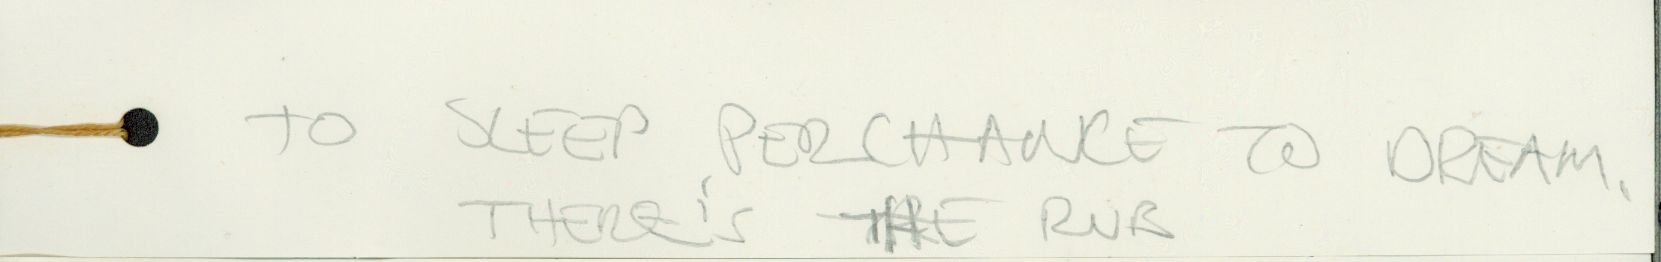 TO SLEEP PERCHANCE TO DREAM.
THERE'S THE RUB